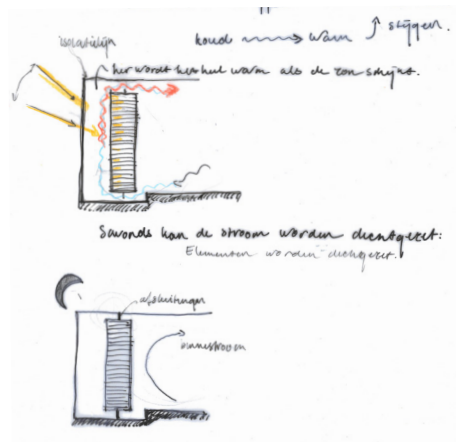 koud warm stijgen.
isolatielijn
hier wordt het heel warm als de zon schijnt.
Savonds kan de stroom worden dichtgezet:
Elementen worden dichtgezet.
afsluitingen
binnenstroom